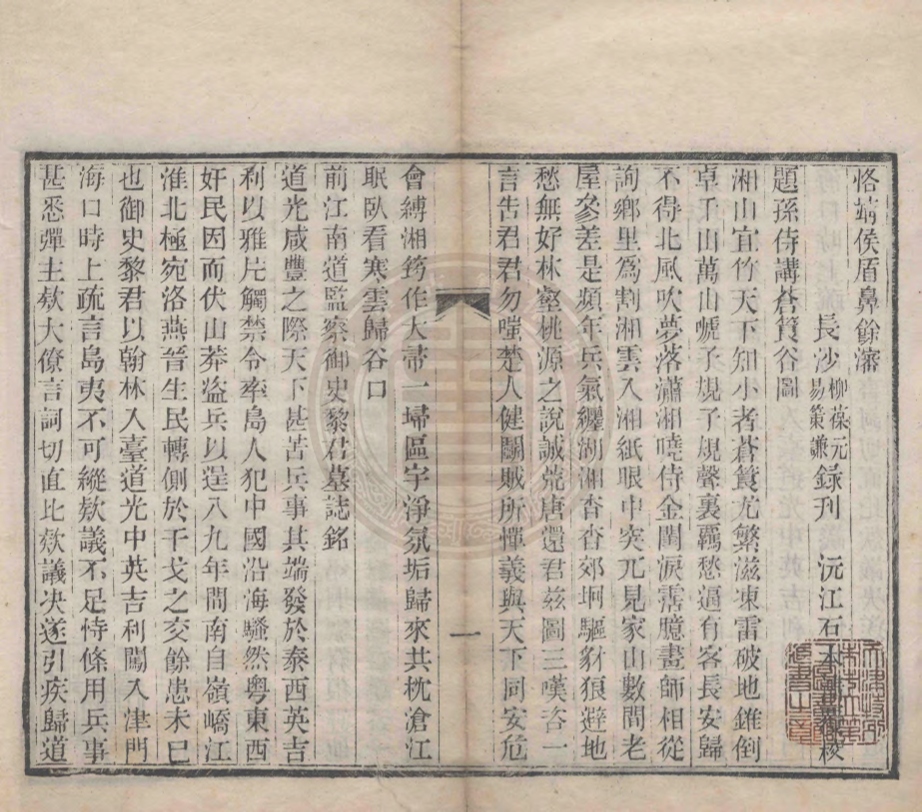 恪靖侯盾鼻餘瀋
長沙柳葆元易策謙錄刊　沅江石校
題孫侍講蒼筤谷圖
湘山宜竹天下知小者蒼筤尤繁滋凍雷破地錐倒
卓千山萬山虩子規子規聲裏覊愁逼有客長安歸
不得北風吹夢落瀟湘曉侍金閨淚霑臆畫師相從
詢鄉里爲割湘雲入湘紙眼中突兀見家山數間老
屋參差是頻年兵氣纏湖湘杳杳郊坰驅豺狼避地
愁無好林壑桃源之說誠荒唐還君兹圖三嘆咨一
言告君君勿嗤楚人健鬭賊所憚義與天下同安危
會縛湘筠作大帚一埽區宇淨氛垢歸來共枕滄江
眠臥看寒雲歸谷口
前江南道監察御史黎君墓誌銘
道光咸豐之際天下甚苦兵事其端發於泰西英吉
利以雅片觸禁令率島人犯中國沿海騷然粤東西
奸民因而伏山莽盜兵以逞八九年間南自嶺嶠江
淮北極宛洛燕晉生民轉側於干戈之交餘患未已
也御史黎君以翰林入臺道光中英吉利闖入津門
海口時上疏言島夷不可縱欵議不足恃條用兵事
甚悉彈主欵大僚言詞切直比欵議決遂引疾歸道
一